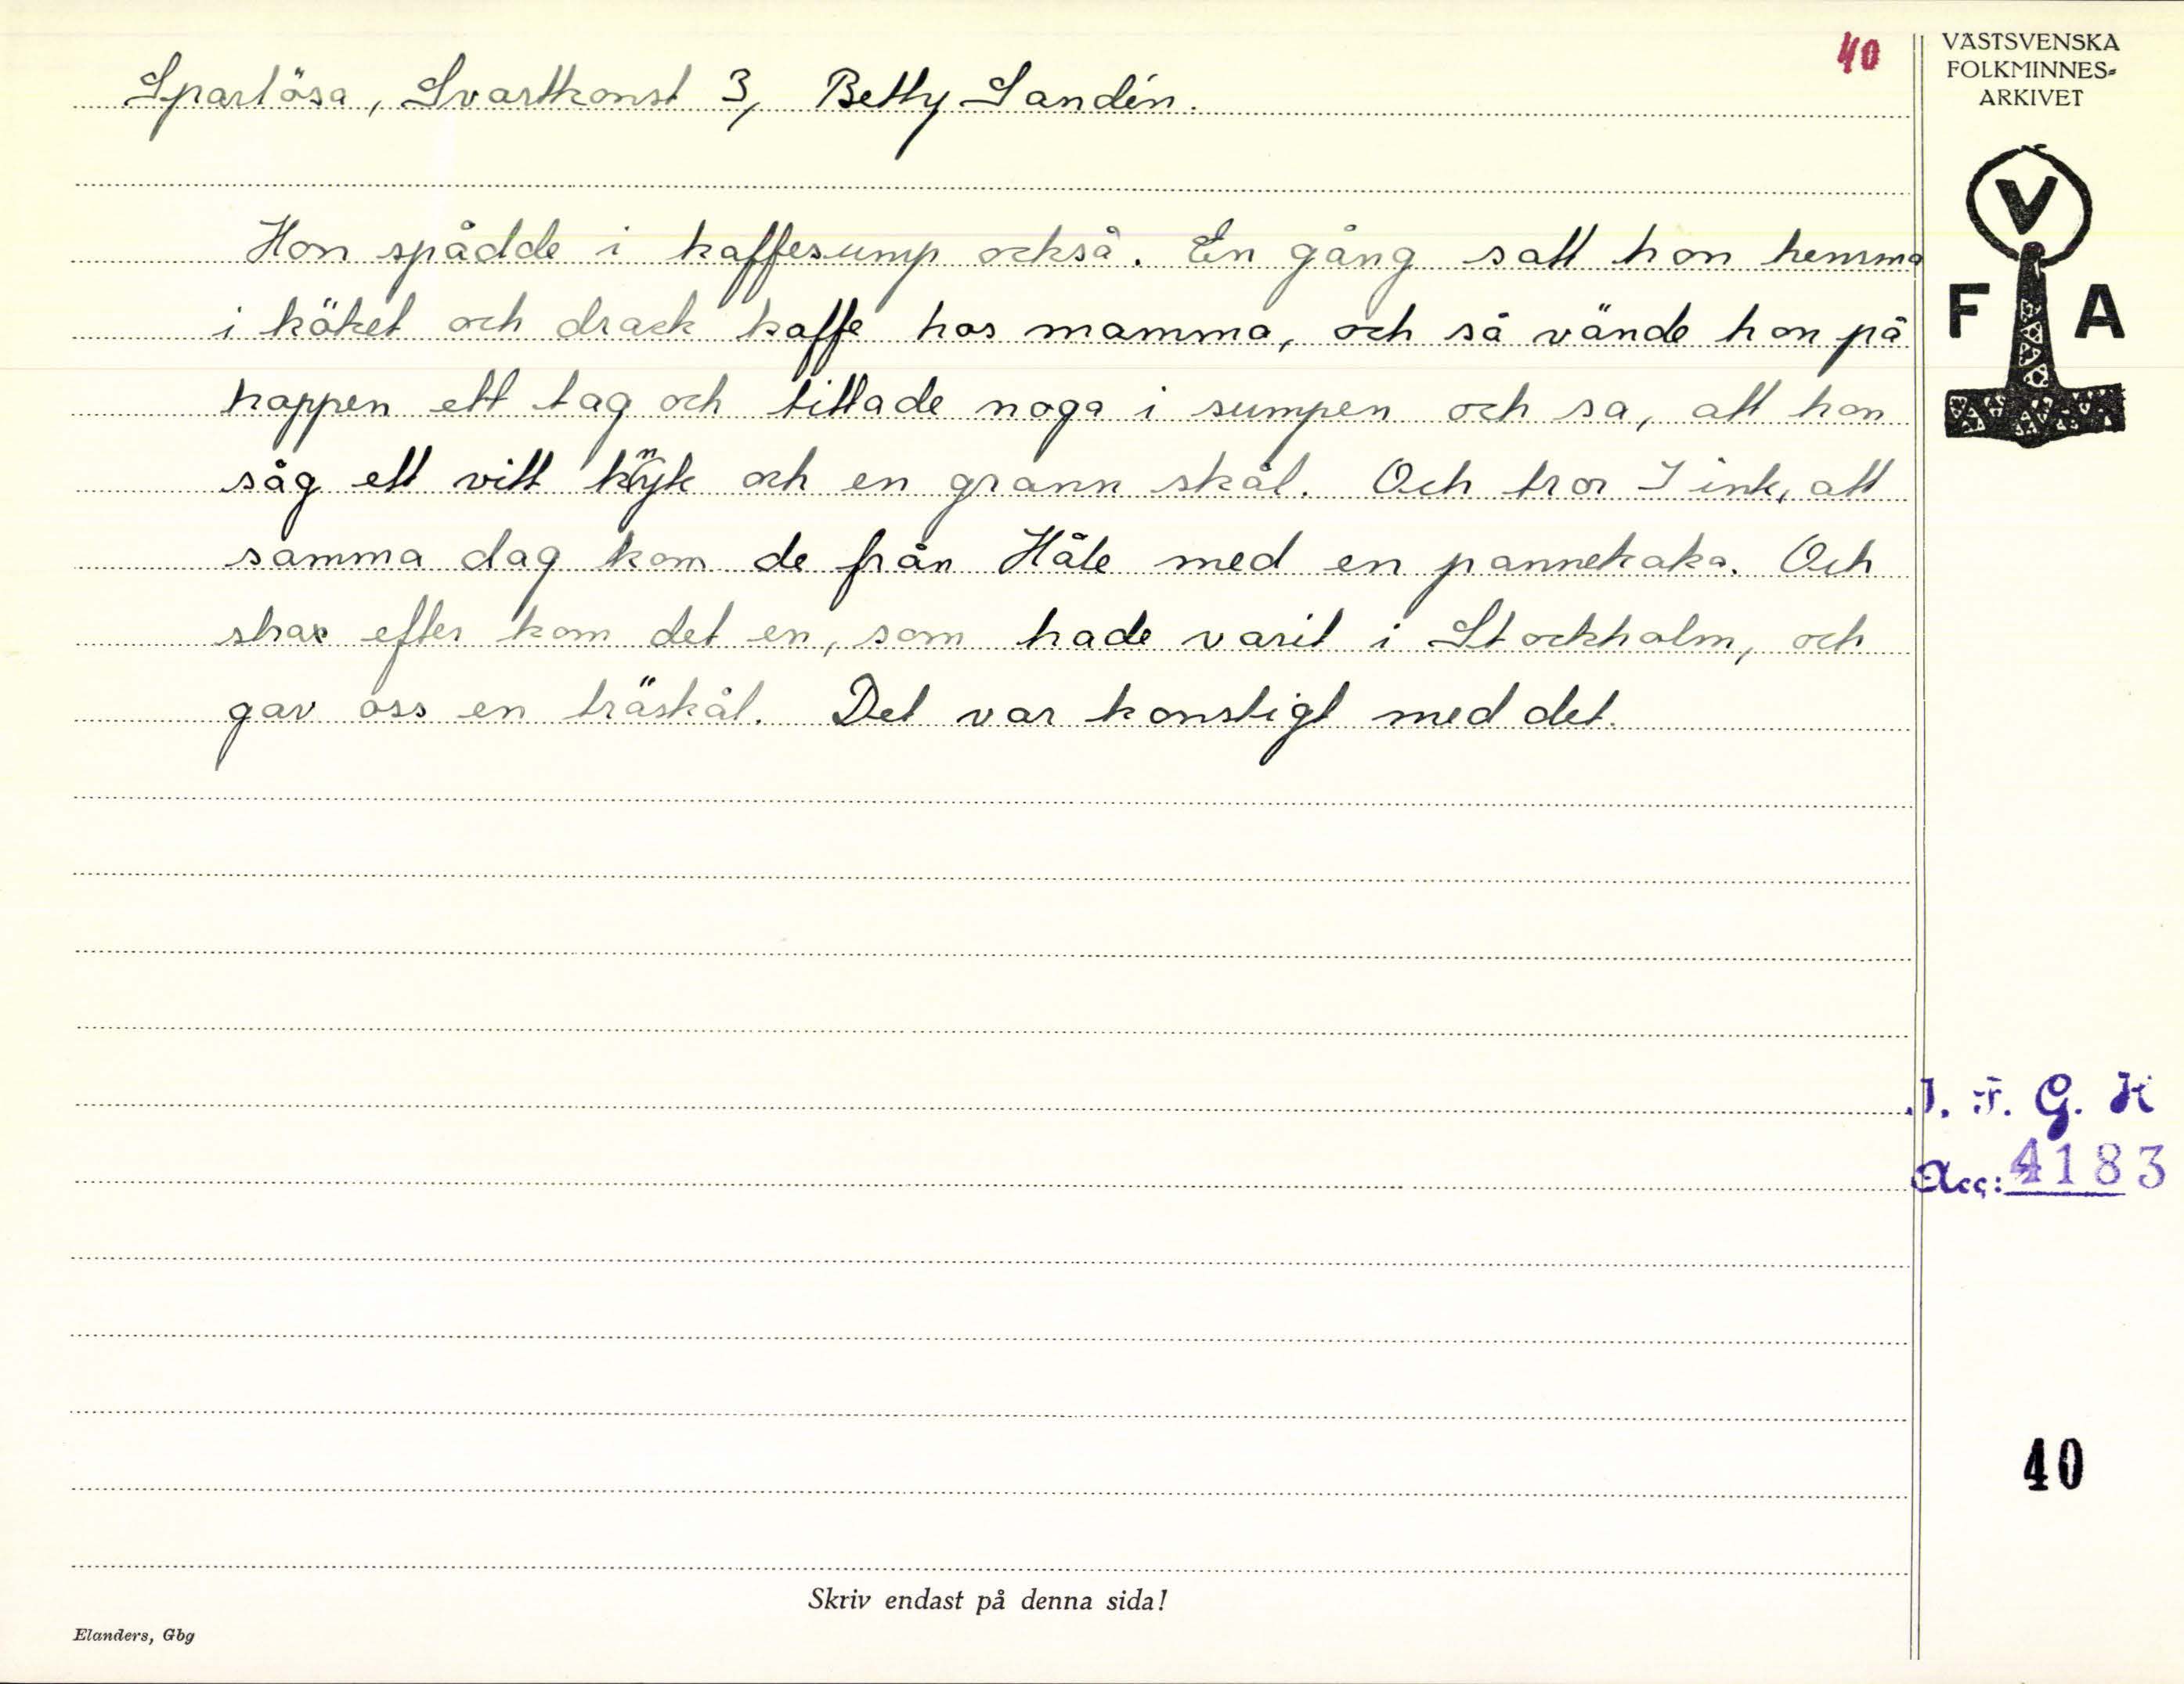 40
Sparlösa, Svartkonst 3, Betty Sandén.
Hon spådde i kaffesump också. En gång satt hon hemma
i köket och drack kaffe hos mamma, och så vände hon på
koppen ett tag och tittade noga i sumpen och sa, att hon
såg ett vitt knyte och en grann skål. Och tror I inte, att
samma dag kom de från Håle med en pannekaka. Och
strax efter kom det en, som hade varit i Stockholm, och
gav oss en träskål. Det var konstigt med det.
VÄSTSVENSKA
FOLKMINNES=
ARKIVET
V
F A
I. F. G. H
Acc: 4183
40
Skriv endast på denna sida!
Elanders, Gbg